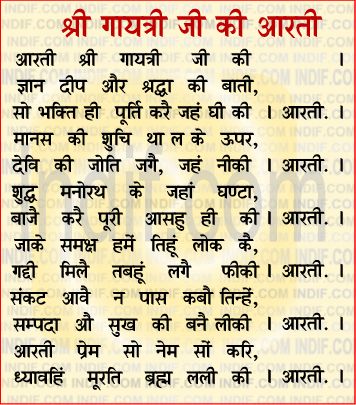 श्री गायत्री जी की आरती
आरती श्री गायत्री जी की ।
ज्ञान दीप और श्रद्धा की बाती,
सो भक्ति ही पूर्ति करै जहं घी की । आरती. ।
मानस की शुचि थाल के ऊपर,
देवि की जोति जगै, जहं नीकी । आरती. ।
शुद्ध मनोरथ के जहां घण्टा,
बाजै करै पूरी आसहु ही की । आरती. ।
जाके समक्ष हमें तिहूं लोक कै,
गद्दी मिलै तबहूं लगै फीकी । आरती. ।
संकट आवै न पास कबौ तिन्हें,
सम्पदा औ सुख की बनै लीकी । आरती. ।
आरती प्रेम सो नेम सों करि,
ध्यावहिं मूरति ब्रह्म लली की । आरती. ।
indif.com
INDIF.COM